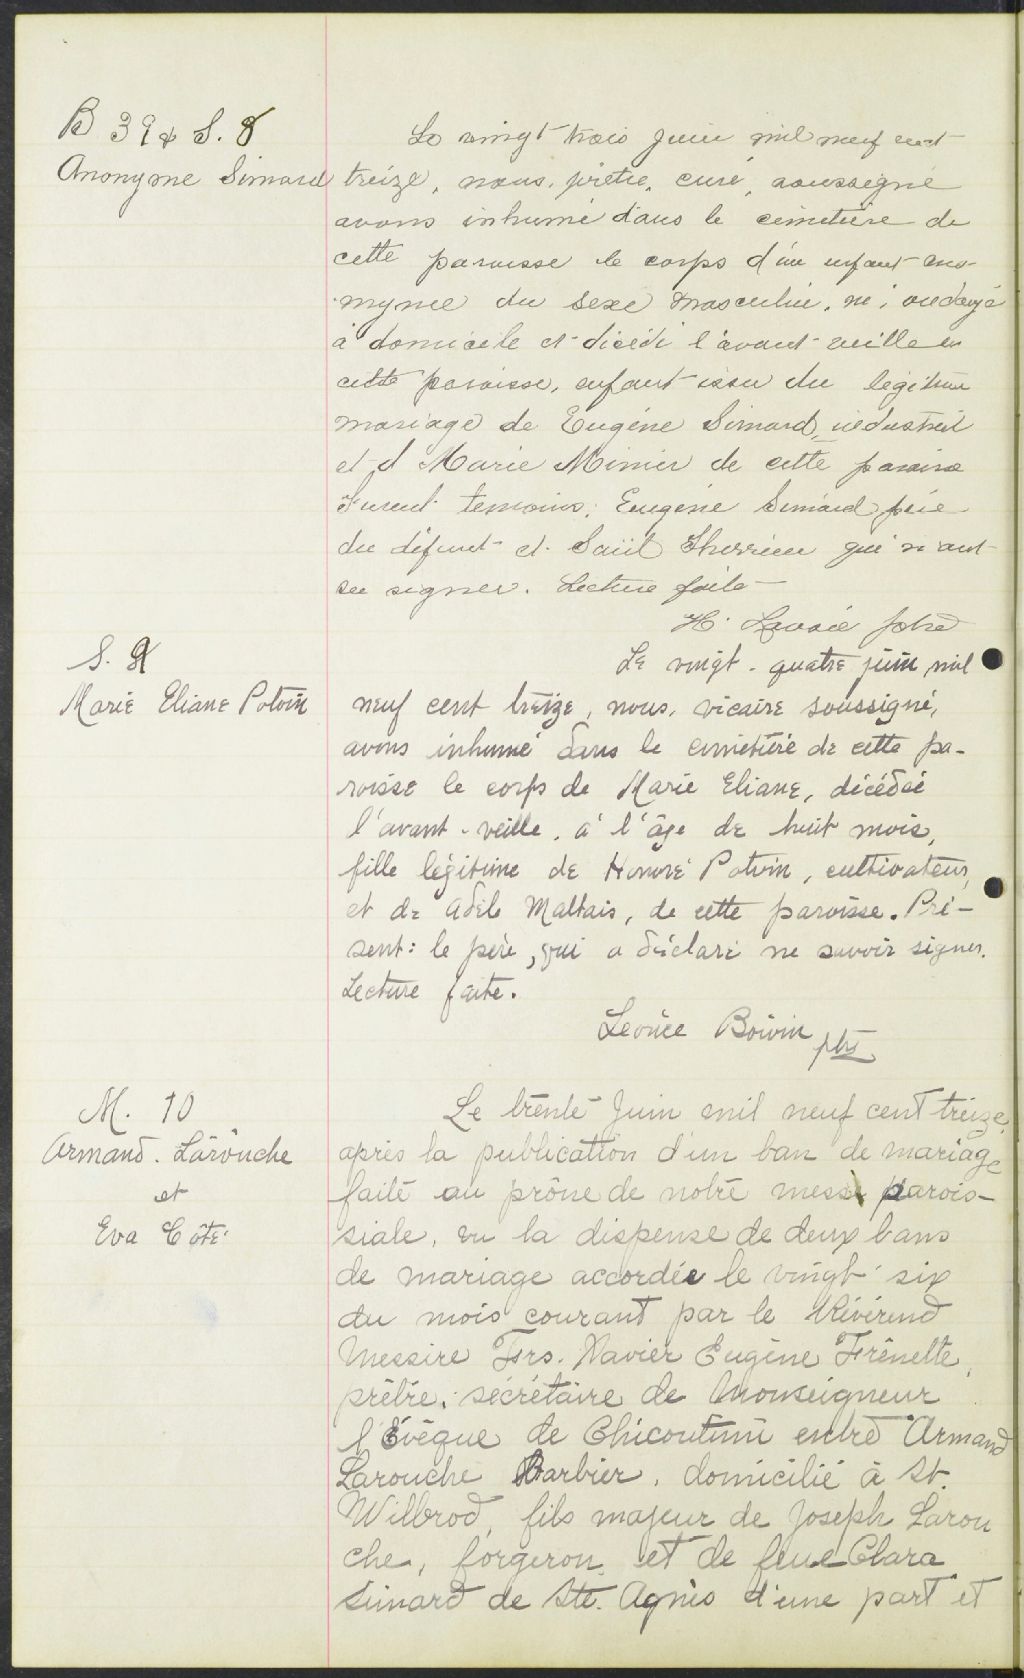 B 39 & S. 8
Anonyme Simard
Le vingt trois juin mil neuf cent
treize, nous, prêtre, curé, soussigné
avons inhumé dans le cimetière de
cette paroisse le corps d'un enfant ano-
nyme du sexe masculin, né, ondoyé
à domicile et décédé l'avant-veille en
cette paroisse, enfant issu du légitime
mariage de Eugène Simard, industriel
et d Marie Minier de cette paroisse
Furent temoins: Eugène Simard père
du défunt et Saül Therrien qui n'ont
su signer. Lecture faite
H. Lavoie ptre
S. 9
Marie Eliane Potvin
Le vingt-quatre juin mil
neuf cent treize, nous, vicaire soussigné,
avons inhumé dans le cimetière de cette pa-
roisse le corps de Marie Eliane, décédée
l'avant-veille, à l'âge de huit mois,
fille légitime de Honoré Potvin, cultivateur,
et de Adèle Maltais, de cette paroisse. Pré-
sent: le père, qui a déclaré ne savoir signer.
Lecture faite.
Léonce Boivin ptre
M. 10
Armand. Larouche
et
Eva Côté
Le trente Juin mil neuf cent treize,
après la publication d'un ban de mariage
faite au prône de notre messe parois-
siale, vu la dispense de deux bans
de mariage accordée le vingt-six
du mois courant par le Révérend
Messire Frs. Xavier Eugène Frenette,
prêtre, sécrétaire de Monseigneur
l'Évêque de Chicoutimi entre Armand
Larouche Barbier, domicilié à St.
Wilbrod, fils majeur de Joseph Larou
che, forgeron, et de feue Clara
Simard de Ste. Agnès d'une part et